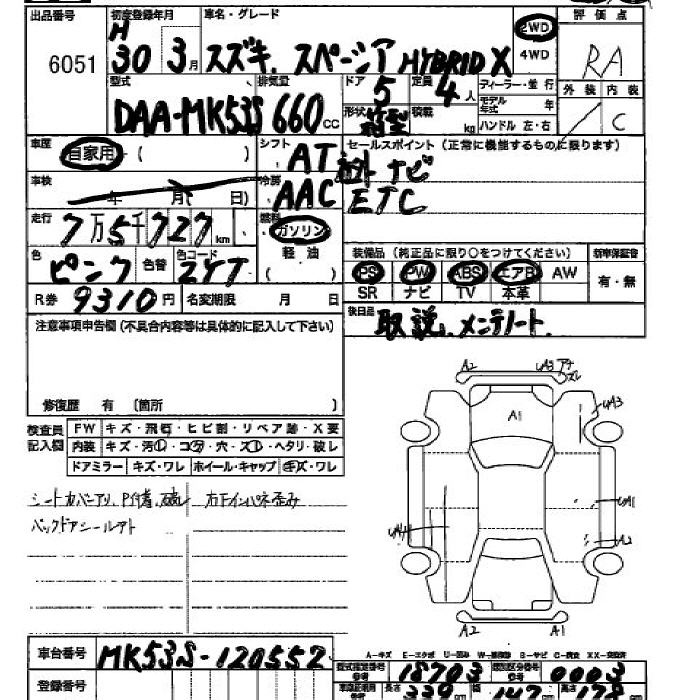 出品番号 初度登録年月 車名・グレード 評価点
6051 H 30 3月 スズキ. スペーシア HYBRID X 2WD RA
4WD
型式 排気量 ドア 定員 ディーラー・並行 外装 内装
DAA-MK53S 660cc 5 4人 モデル年式 年 C
形状 箱型 積載 kg ハンドル 左・右
車歴 自家用・( ) シフト AT セールスポイント(正常に機能するものに限ります)
社外ナビ
車検 年 月( 日) 冷房 AAC ETC
走行 7万5千727km 燃料 ガソリン
軽油
( )
色 ピンク 色替 色コード ZYT 装備品(純正品に限り○をつけてください) 新車保証書
PS PW ABS エアB AW 有・無
SR ナビ TV 本革
R券 9310円 名変期限 月 日
後日品 取説、メンテノート.
注意事項申告欄(不具合内容等は具体的に記入して下さい)
修復歴 有 〔箇所 〕
検査員記入欄 FW キズ・飛石・ヒビ割・リペア跡・X要
内装 キズ・汚レ・コゲ・穴・スレ・ヘタリ・破レ
ドアミラー キズ・ワレ ホイール・キャップ キズ・ワレ
バックドアシールアト
A2 UA3
A1 UA3
UA1
A2
A2 A1
A-キズ E-エクボ U-凹み W-補修跡 S-サビ C-腐食 XX-交換済
車台番号 MK53S-120552 型式指定番号 18703 類別区分番号 0003
登録番号 長さ 339cm 幅 147cm 高さ